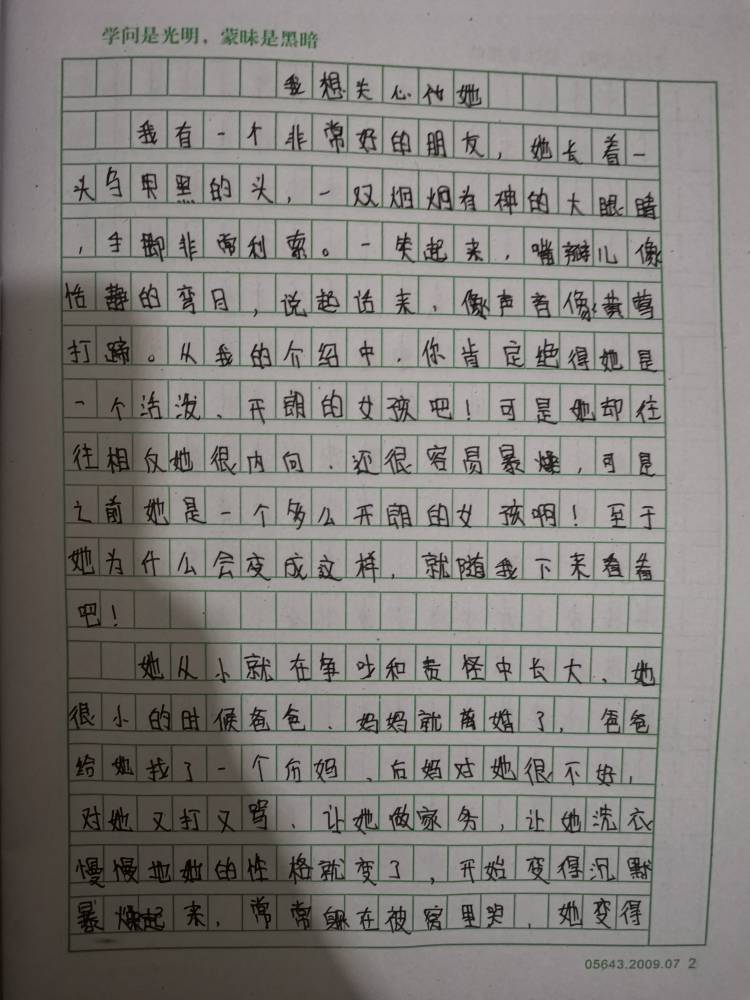 学问是光明，蒙昧是黑暗
我想关心她
我有一个非常好的朋友，她长着一
头乌黑的头，一双炯炯有神的大眼睛
，手脚非常利索。一笑起来，嘴瓣儿像
恬静的弯月，说起话来，像声音像黄莺
打蹄。从我的介绍中，你肯定绝得她是
一个活泼、开朗的女孩吧！可是她却往
往相反她很内向、还很容易暴燥，可是
之前她是一个多么开朗的女孩啊！至于
她为什么会变成这样，就随我下来看看
吧！
她从小就在争吵和责怪中长大、她
很小的时候爸爸、妈妈就离婚了，爸爸
给她找了一个后妈、后妈对她很不好，
对她又打又骂、让她做家务，让她洗衣
慢慢地她的性格就变了，开始变得沉默
暴燥起来，常常躲在被窝里哭，她变得
05643.2009.07 2